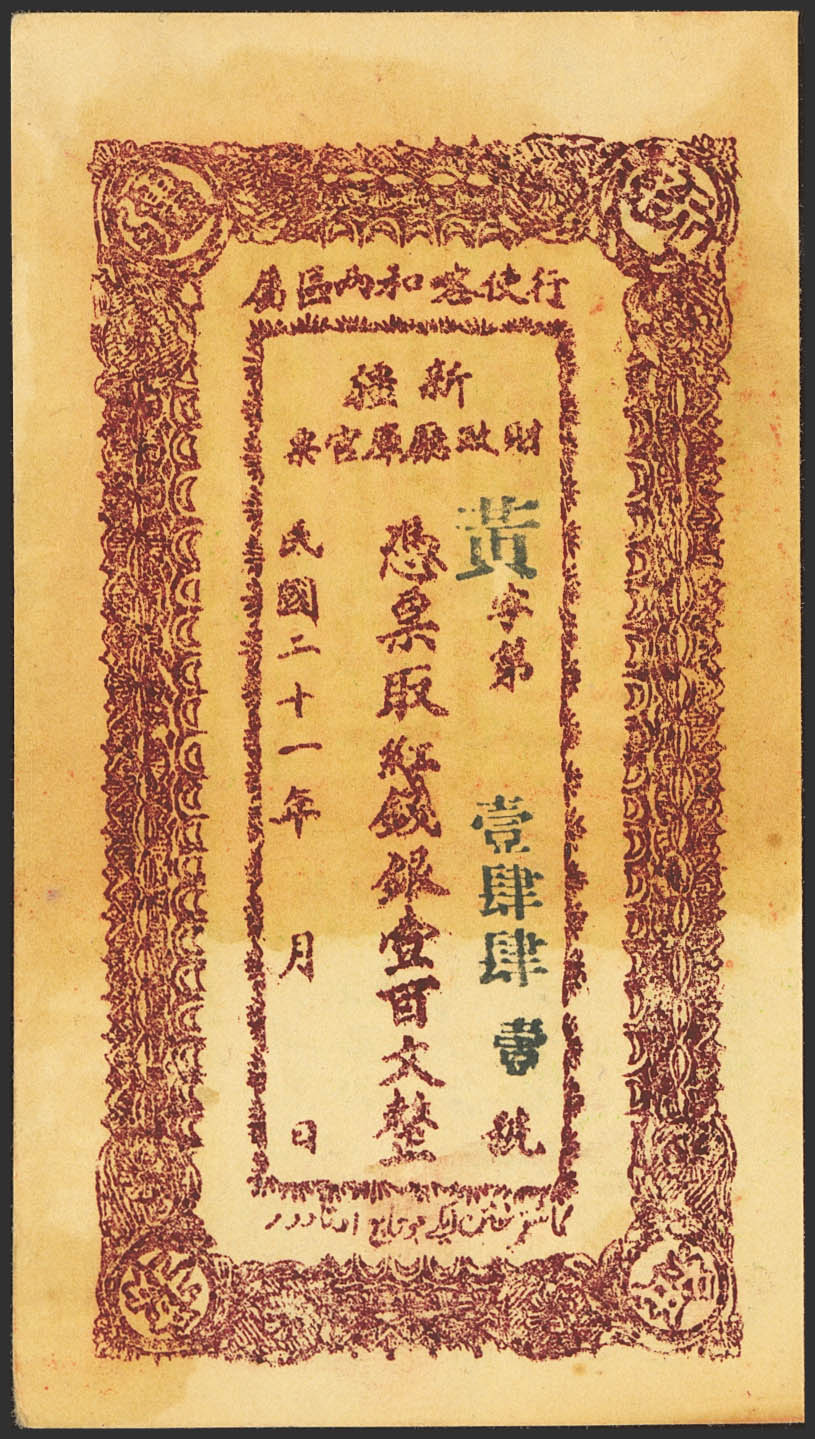 行使喀和兩區屬
新疆
財政廳庫官票
黃字第壹肆肆壹號
憑票取紅錢銀壹百文整
民國二十一年 月 日